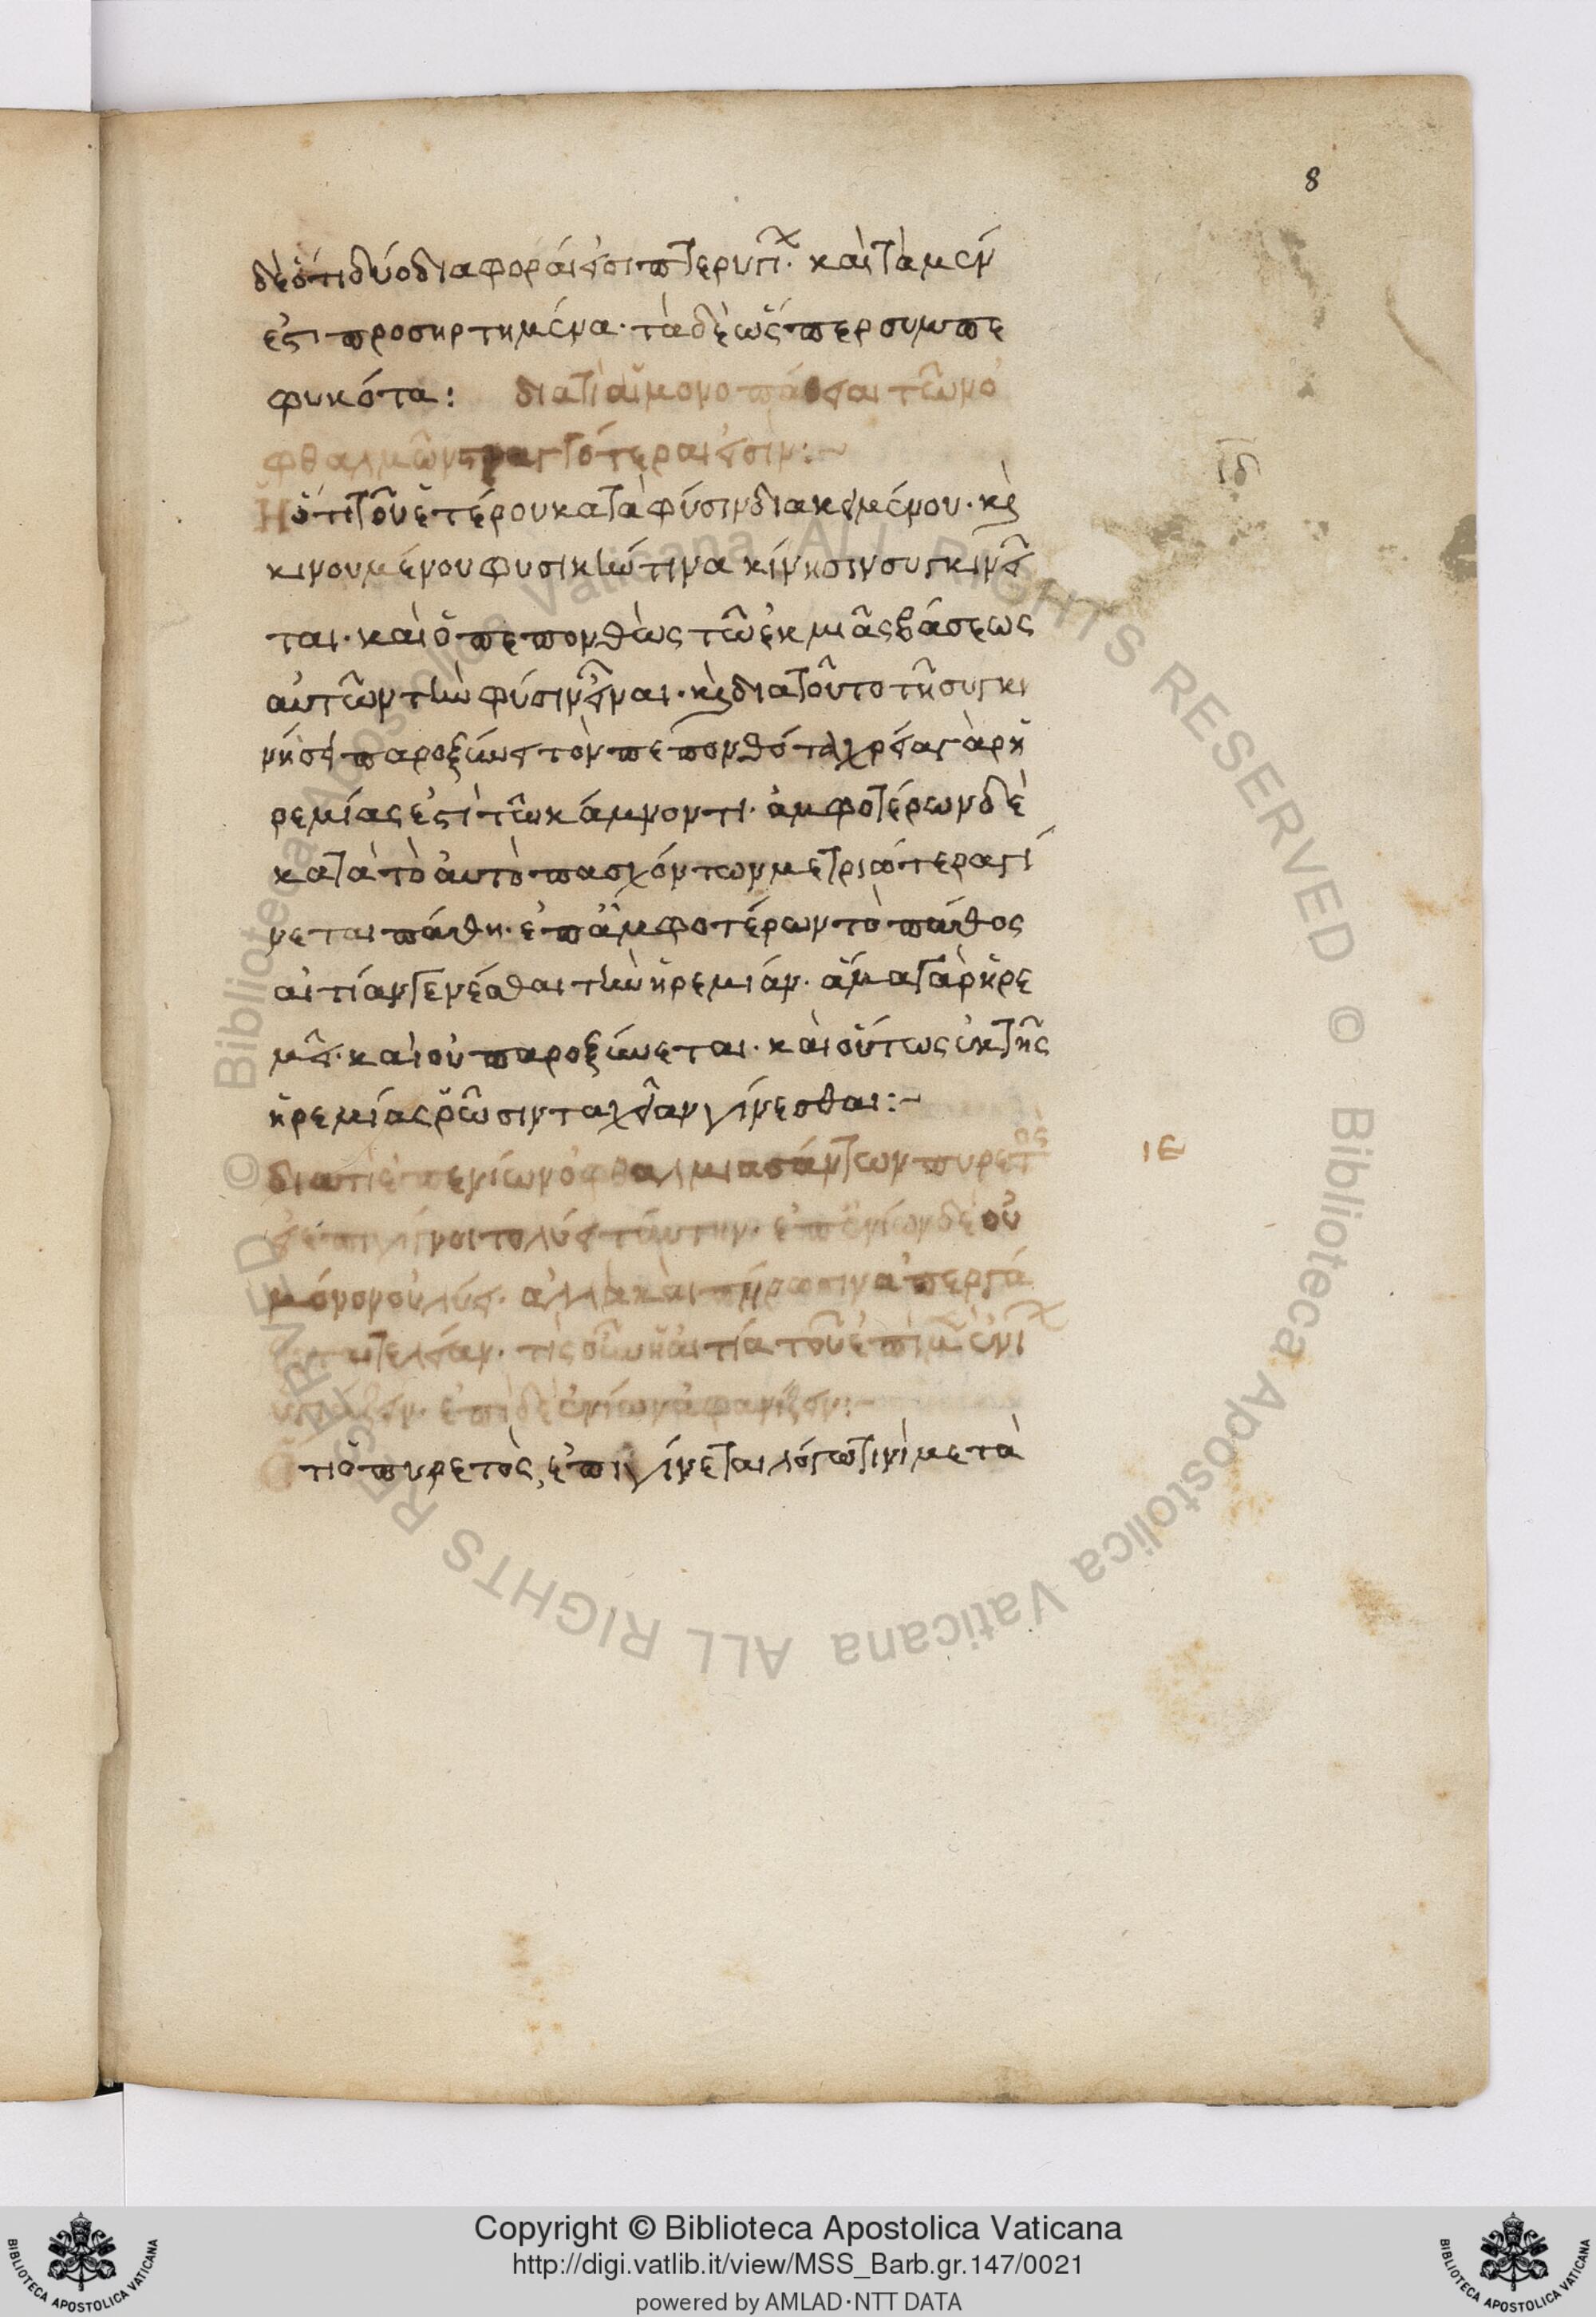 8
δὲ ὅτι δύο διαφοραί εἰσι πτερυγίχ. καὶ τὰ μὲν
ἐστι προσηρτημένα. τὰ δὲ ὥσπερ συμπε
φυκότα: διατί αἱ μονο τῶν ὀ
φθαλμῶν εἰσίν:~
ιδ
Ἢ ὅτι τοῦ ἑτέρου κατὰ φύσιν διακειμένου. κὲ
κινουμένου φυσικὴν τινα κίνησιν συγκινεῖ
ται. καὶ ὁ πεπονθὼς τῶ ἐκ μιᾶς βάσεως
αὐτῶν τὴν φύσιν εἶναι. κὲ διατοῦτο τῆ συγκι
νήσει παροξύνει τὸν πεπονθότα χρεία γὰρ ἠ
ρεμίας ἐστὶ τῶ κάμνοντι. ἀμφοτέρων δὲ
κατὰ τὸ αὐτὸ πασχόντων μετριώτερα γί
νεται πάθη. ἐπ ἀμφοτέρων τὸ πάθος
αἰτίαν γενέσθαι τὴν ἠρεμίαν. ἅμα γὰρ ἠρε
μεῖ. καὶ οὐ παροξύνεται. καὶ οὕτως ἐκ τῆς
ἠρεμίας ῥῶσιν ταχεῖαν γίνεσθαι:~
διατί ἐπ ἐνίων ὀφθαλμιασάντων πυρετὸς
ιε
ἐπιγίνοιτο λύει ταύτην. ἐπ ἐνίων δὲ οὐ
μόνον οὐ λύει. ἀλλὰ καὶ πήρωσιν ἀπεργά
τελείαν. τίς οὖν ἡ αἰτία τοῦ ἐπὶ μὲν ἐνί
ἐπὶ δὲ ἐνίων ἀφανίζειν:~
Ὅτι ὁ πυρετὸς, ἐπιγίνεται λόγω τινὶ μετὰ
Copyright © Biblioteca Apostolica Vaticana
http://digi.vatlib.it/view/MSS_Barb.gr.147/0021
powered by AMLAD·NTT DATA
BIBLIOTECA APOSTOLICA VATICANA
BIBLIOTECA APOSTOLICA VATICANA
© Biblioteca Apostolica Vaticana ALL RIGHTS RESERVED © Biblioteca Apostolica Vaticana ALL RIGHTS RESERVED